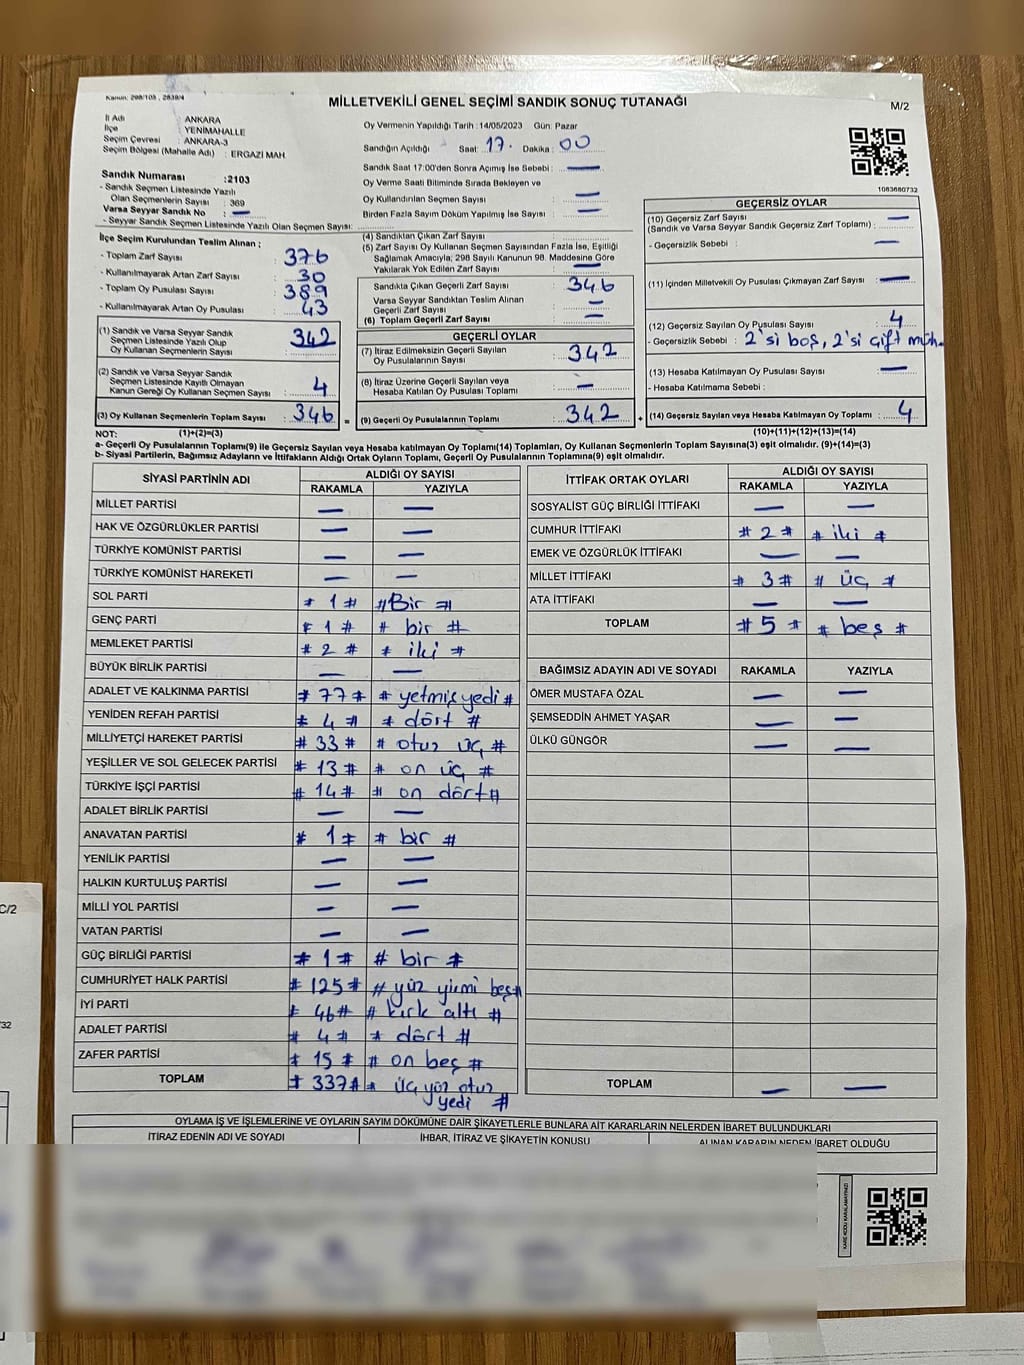 Kanun: 298/105 , 2839/4
MİLLETVEKİLİ GENEL SEÇİMİ SANDIK SONUÇ TUTANAĞI
M/2
İl Adı : ANKARA
İlçe : YENİMAHALLE
Seçim Çevresi : ANKARA-3
Seçim Bölgesi (Mahalle Adı) : ERGAZİ MAH
Oy Vermenin Yapıldığı Tarih : 14/05/2023 Gün: Pazar
Sandığın Açıldığı Saat : 17. Dakika : 00
Sandık Saat 17:00'den Sonra Açımış İse Sebebi : —
Oy Verme Saati Bitiminde Sırada Bekleyen ve
Oy Kullandırılan Seçmen Sayısı : —
Birden Fazla Sayım Döküm Yapılmış İse Sayısı : —
1083680732
Sandık Numarası : 2103
- Sandık Seçmen Listesinde Yazılı
Olan Seçmenlerin Sayısı : 369
Varsa Seyyar Sandık No : —
- Seyyar Sandık Seçmen Listesinde Yazılı Olan Seçmen Sayısı:
İlçe Seçim Kurulundan Teslim Alınan ;
- Toplam Zarf Sayısı : 376
- Kullanılmayarak Artan Zarf Sayısı : 30
- Toplam Oy Pusulası Sayısı : 389
- Kullanılmayarak Artan Oy Pusulası : 43
(1) Sandık ve Varsa Seyyar Sandık
Seçmen Listesinde Yazılı Olup
Oy Kullanan Seçmenlerin Sayısı : 342
(2) Sandık ve Varsa Seyyar Sandık
Seçmen Listesinde Kayıtlı Olmayan
Kanun Gereği Oy Kullanan Seçmen Sayısı : 4
(3) Oy Kullanan Seçmenlerin Toplam Sayısı : 346 =
(4) Sandıktan Çıkan Zarf Sayısı :
(5) Zarf Sayısı Oy Kullanan Seçmen Sayısından Fazla İse, Eşitliği
Sağlamak Amacıyla, 298 Sayılı Kanunun 98. Maddesine Göre
Yakılarak Yok Edilen Zarf Sayısı : —
Sandıkta Çıkan Geçerli Zarf Sayısı : 346
Varsa Seyyar Sandıktan Teslim Alınan
Geçerli Zarf Sayısı : —
(6) Toplam Geçerli Zarf Sayısı : —
GEÇERLİ OYLAR
(7) İtiraz Edilmeksizin Geçerli Sayılan
Oy Pusulalarının Sayısı : 342
(8) İtiraz Üzerine Geçerli Sayılan veya
Hesaba Katılan Oy Pusulası Toplamı : —
(9) Geçerli Oy Pusulalarının Toplamı : 342 +
GEÇERSİZ OYLAR
(10) Geçersiz Zarf Sayısı : —
(Sandık ve Varsa Seyyar Sandık Geçersiz Zarf Toplamı)
- Geçersizlik Sebebi : —
(11) İçinden Milletvekili Oy Pusulası Çıkmayan Zarf Sayısı : —
(12) Geçersiz Sayılan Oy Pusulası Sayısı : 4
- Geçersizlik Sebebi : 2'si boş, 2'si çift müh.
(13) Hesaba Katılmayan Oy Pusulası Sayısı : —
- Hesaba Katılmama Sebebi :
(14) Geçersiz Sayılan veya Hesaba Katılmayan Oy Toplamı : 4
NOT: (1)+(2)=(3) (10)+(11)+(12)+(13)=(14)
a- Geçerli Oy Pusulalarının Toplamı(9) ile Geçersiz Sayılan veya Hesaba Katılmayan Oy Toplamı(14) Toplamları, Oy Kullanan Seçmenlerin Toplam Sayısına(3) eşit olmalıdır. (9)+(14)=(3)
b- Siyasi Partilerin, Bağımsız Adayların ve İttifakların Aldığı Ortak Oyların Toplamı, Geçerli Oy Pusulalarının Toplamına(9) eşit olmalıdır.
SİYASİ PARTİNİN ADI ALDIĞI OY SAYISI
RAKAMLA YAZIYLA
MİLLET PARTİSİ — —
HAK VE ÖZGÜRLÜKLER PARTİSİ — —
TÜRKİYE KOMÜNİST PARTİSİ — —
TÜRKİYE KOMÜNİST HAREKETİ — —
SOL PARTİ # 1 # # Bir #
GENÇ PARTİ # 1 # # bir #
MEMLEKET PARTİSİ # 2 # # iki #
BÜYÜK BİRLİK PARTİSİ — —
ADALET VE KALKINMA PARTİSİ # 77 # # yetmiş yedi #
YENİDEN REFAH PARTİSİ # 4 # # dört #
MİLLİYETÇİ HAREKET PARTİSİ # 33 # # otuz üç #
YEŞİLLER VE SOL GELECEK PARTİSİ # 13 # # on üç #
TÜRKİYE İŞÇİ PARTİSİ # 14 # # on dört #
ADALET BİRLİK PARTİSİ — —
ANAVATAN PARTİSİ # 1 # # bir #
YENİLİK PARTİSİ — —
HALKIN KURTULUŞ PARTİSİ — —
MİLLİ YOL PARTİSİ — —
VATAN PARTİSİ — —
GÜÇ BİRLİĞİ PARTİSİ # 1 # # bir #
CUMHURİYET HALK PARTİSİ # 125 # # yüz yirmi beş #
İYİ PARTİ # 46 # # kırk altı #
ADALET PARTİSİ # 4 # # dört #
ZAFER PARTİSİ # 15 # # on beş #
TOPLAM # 337 # # üç yüz otuz
yedi #
İTTİFAK ORTAK OYLARI ALDIĞI OY SAYISI
RAKAMLA YAZIYLA
SOSYALİST GÜÇ BİRLİĞİ İTTİFAKI — —
CUMHUR İTTİFAKI # 2 # # iki #
EMEK VE ÖZGÜRLÜK İTTİFAKI — —
MİLLET İTTİFAKI # 3 # # üç #
ATA İTTİFAKI — —
TOPLAM # 5 # # beş #
BAĞIMSIZ ADAYIN ADI VE SOYADI RAKAMLA YAZIYLA
ÖMER MUSTAFA ÖZAL — —
ŞEMSEDDİN AHMET YAŞAR — —
ÜLKÜ GÜNGÖR — —
TOPLAM — —
OYLAMA İŞ VE İŞLEMLERİNE VE OYLARIN SAYIM DÖKÜMÜNE DAİR ŞİKAYETLERLE BUNLARA AİT KARARLARIN NELERDEN İBARET BULUNDUKLARI
İTİRAZ EDENİN ADI VE SOYADI İHBAR, İTİRAZ VE ŞİKAYETİN KONUSU ALINAN KARARIN NEDEN İBARET OLDUĞU
KARE KODU KARALAMAYINIZ!
C/2